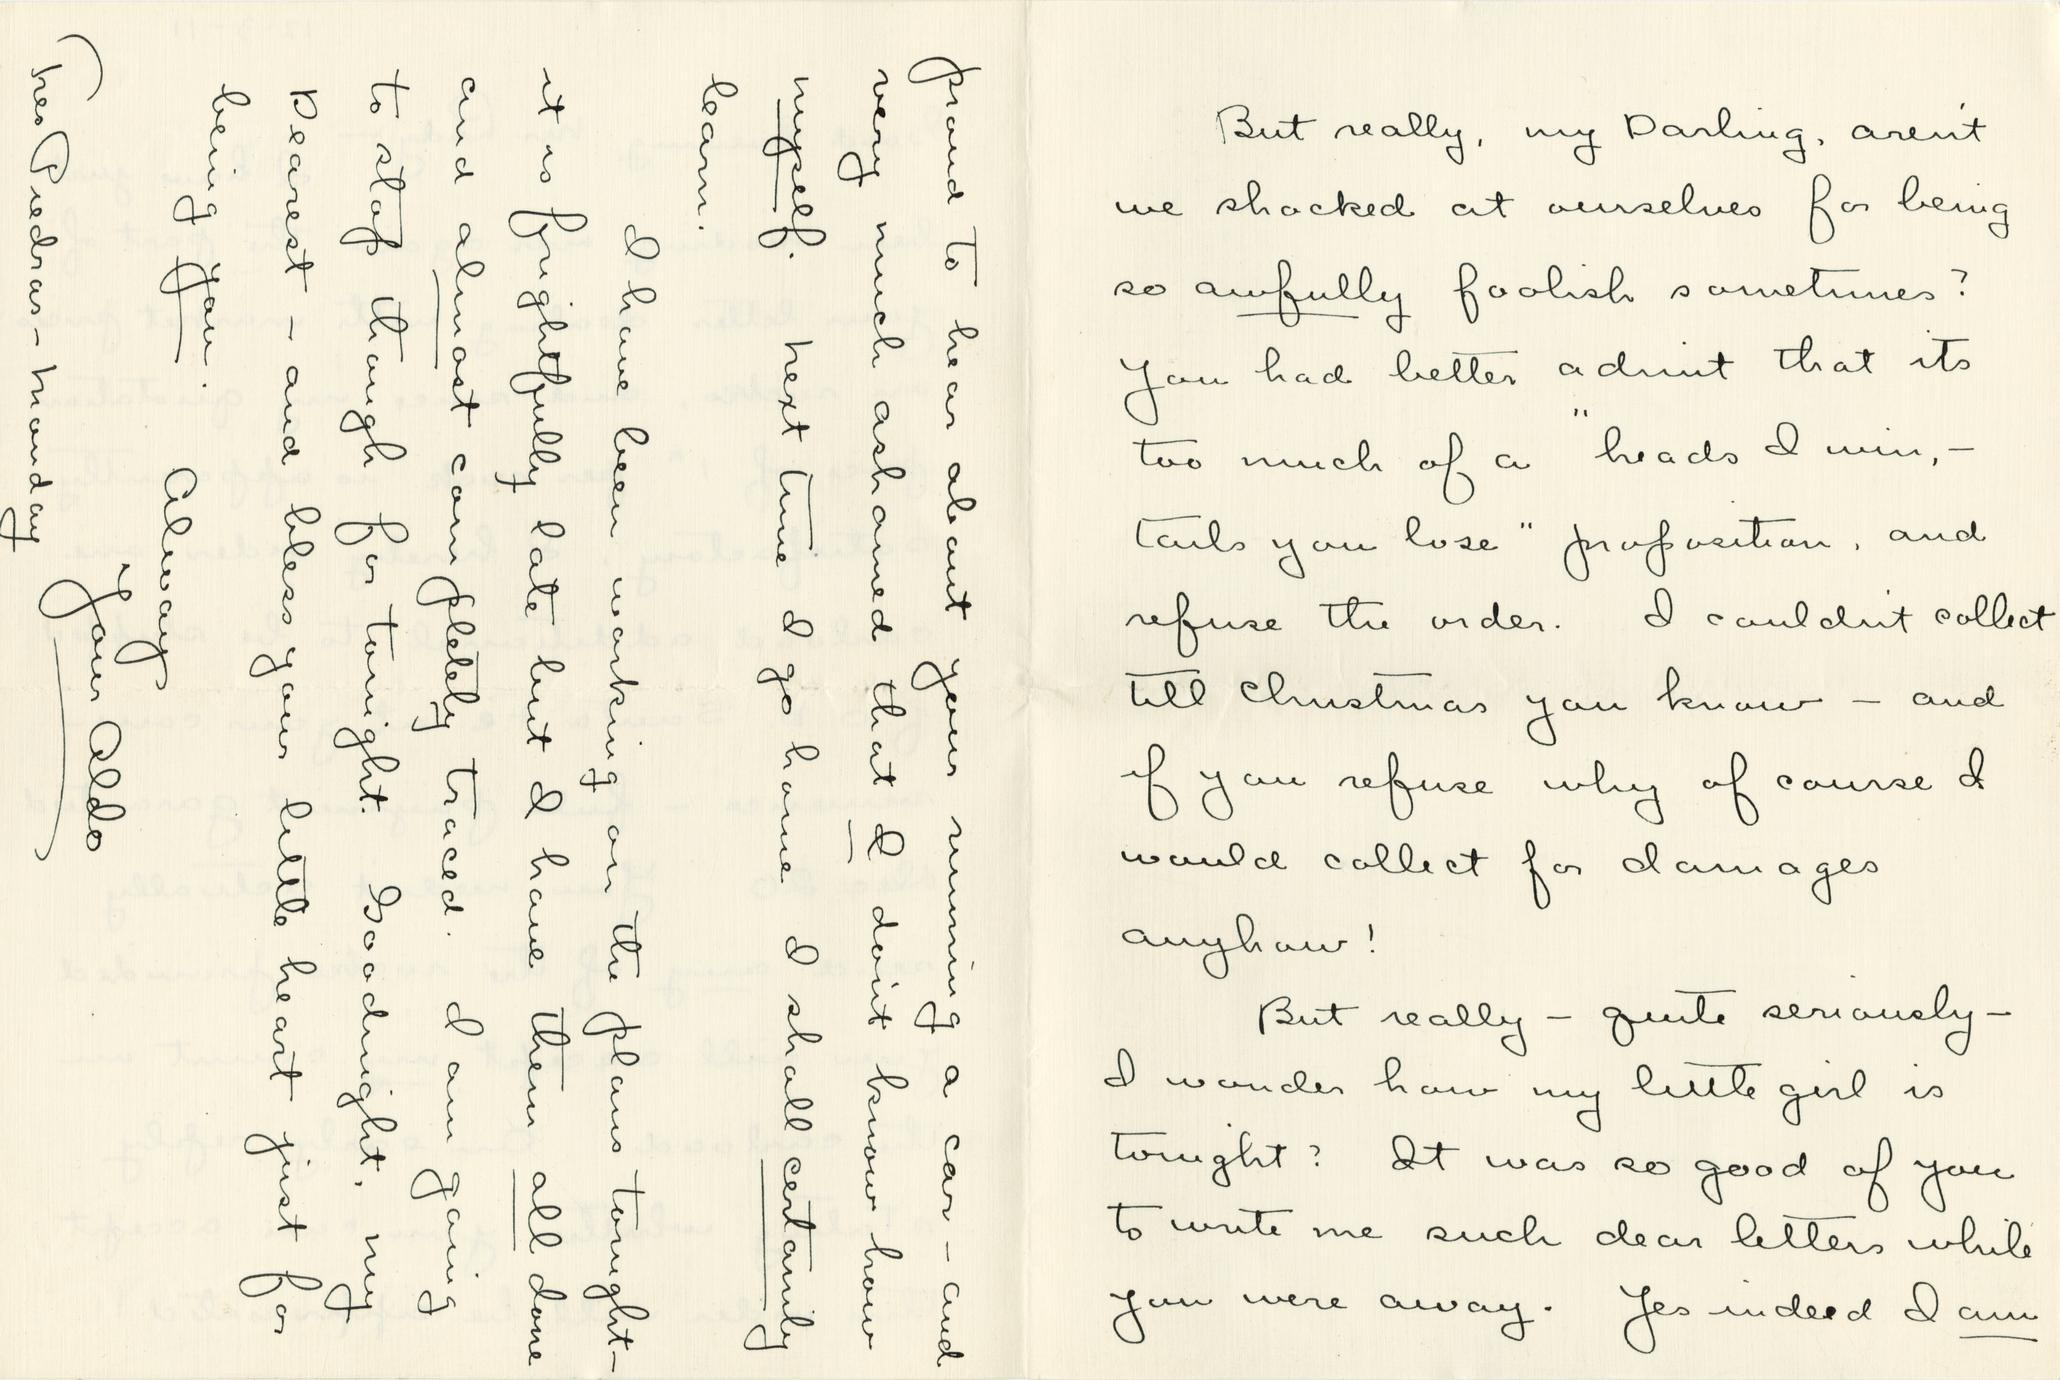 But really, my Darling, aren't
we shocked at ourselves for being
so awfully foolish sometimes?
You had better admit that its
too much of a "heads I win, –
tails you lose" proposition, and
refuse the order. I couldn't collect
till Christmas you know – and
if you refuse why of course I
would collect for damages
anyhow!
But really – quite seriously –
I wonder how my little girl is
tonight? It was so good of you
to write me such dear letters while
you were away. Yes indeed I am
proud to hear about your running a car – and
very much ashamed that I don't know how
myself. Next time I go home I shall certainly
learn.
I have been working on the plans tonight –
it is frightfully late but I have them all done
and almost completely traced. I am going
to stop though for tonight. Goodnight, my
Dearest – and bless your little heart just for
being you.
Always
Your Aldo
Tres Piedras – Monday